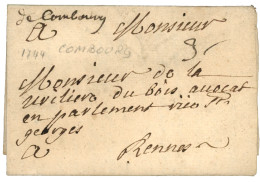 de Combourg
A Monsieur
1744 COMBOURG 3
Monsieur de la
du bois avocat
en parlement rüe St
georges
A Rennes